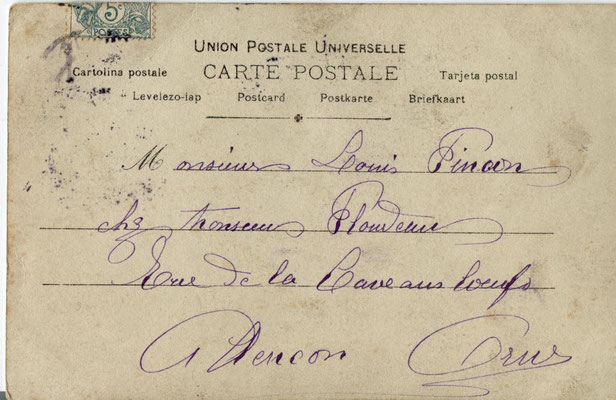 5c
POSTES
UNION POSTALE UNIVERSELLE
Cartolina postale CARTE POSTALE Tarjeta postal
Levelezo-lap Postcard Postkarte Briefkaart
Monsieur Louis Pinson
chez Monsieur Plondeau
Rue de la Cave aux boeufs
Alencon Orne